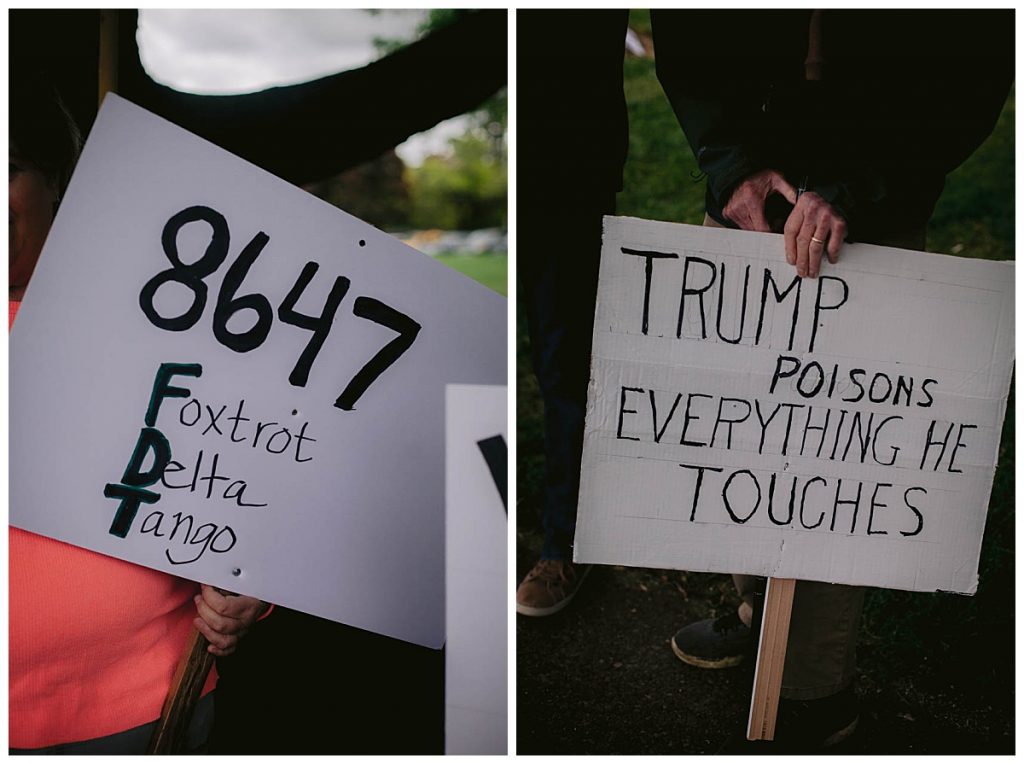 8647
Foxtrot
Delta
Tango
TRUMP
POISONS
EVERYTHING HE
TOUCHES